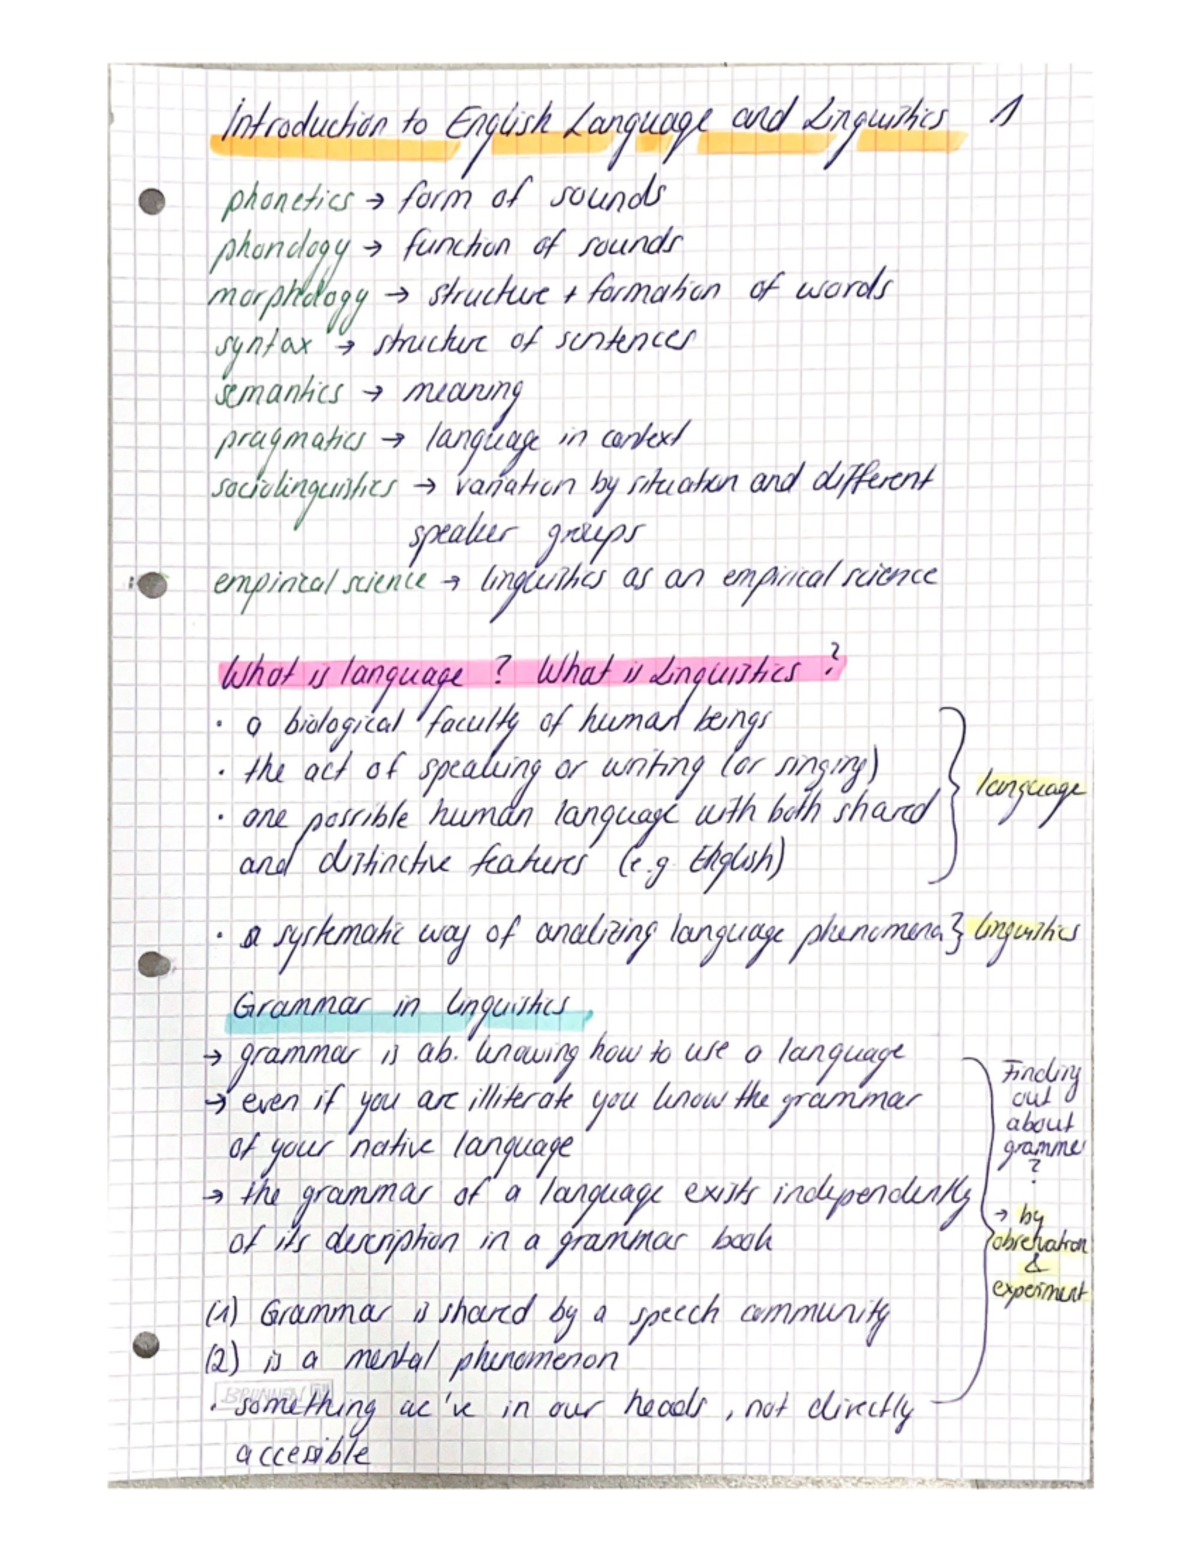 Introduction to English Language and Linguistics 1
phonetics → form of sounds
phonology → function of sounds
morphology → structure + formation of words
syntax → structure of sentences
semantics → meaning
pragmatics → language in context
sociolinguistics → variation by situation and different
speaker groups
empirical science → linguistics as an empirical science
What is language? What is Linguistics?
· a biological faculty of human beings
· the act of speaking or writing (or singing)
· one possible human language with both shared
and distinctive features (e.g. English)
language
· a systematic way of analizing language phenomena} linguistics
Grammar in linguistics
→ grammar is ab. knowing how to use a language
→ even if you are illiterate you know the grammar
of your native language
→ the grammar of a language exists independently
of its description in a grammar book
(1) Grammar is shared by a speech community
(2) is a mental phenomenon
· something we've in our heads, not directly
accesible
Finding
out
about
grammer
?
→ by
observation
&
experiment
BRUNNEN